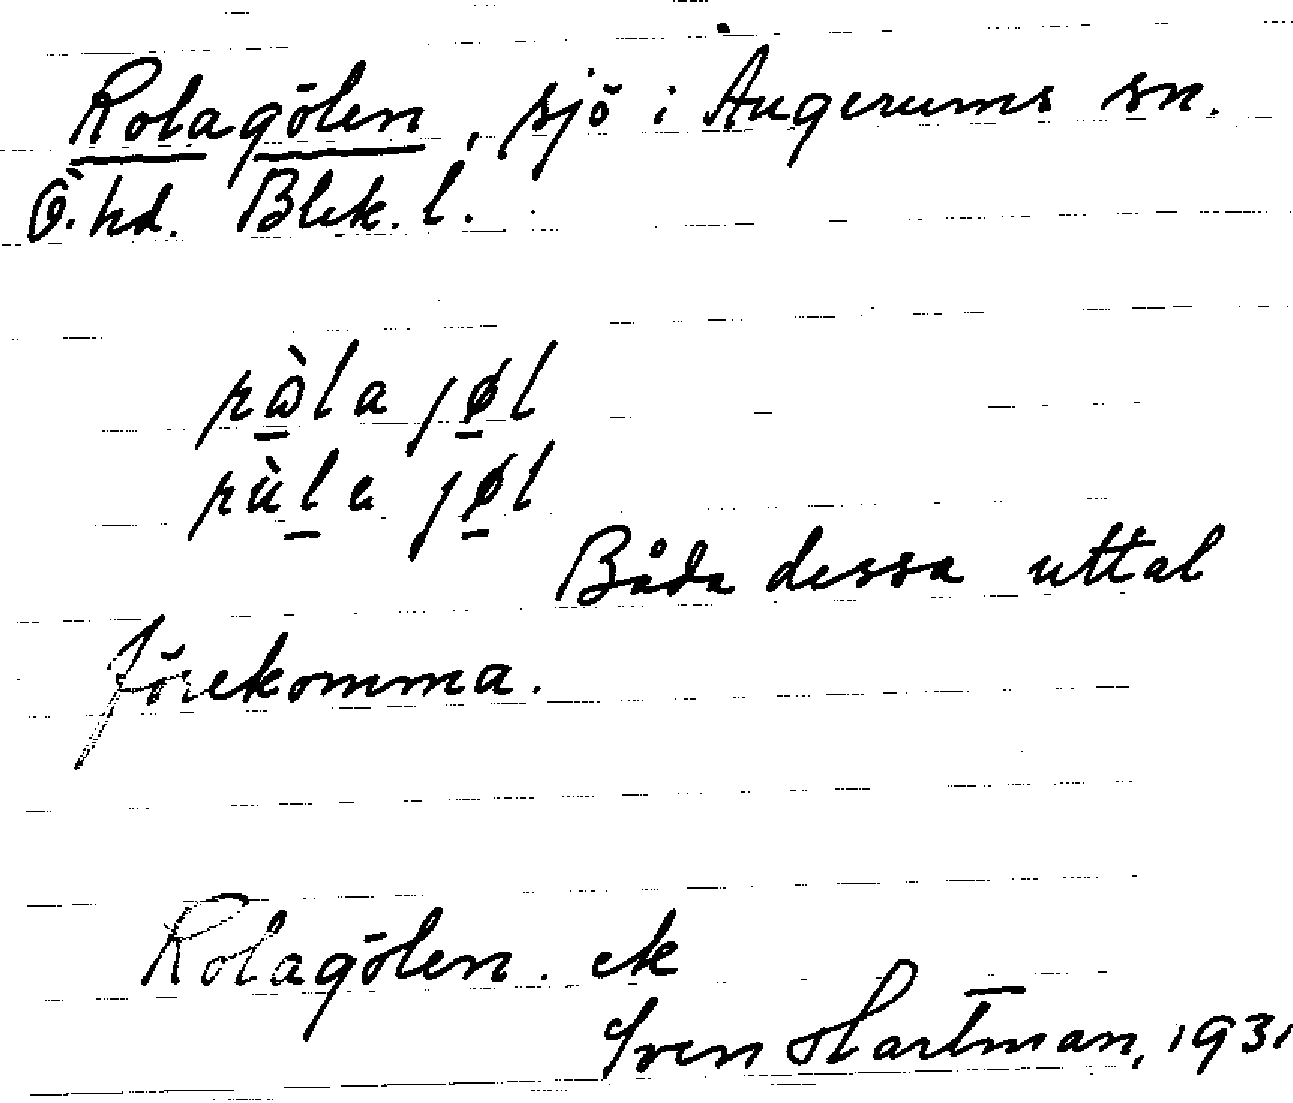 Rolagölen, sjö i Augerums sn.
Ö. hd. Blek. l.
Båda dessa uttal
förekomma.
Rolagölen. ek
Sven Hartman, 1931